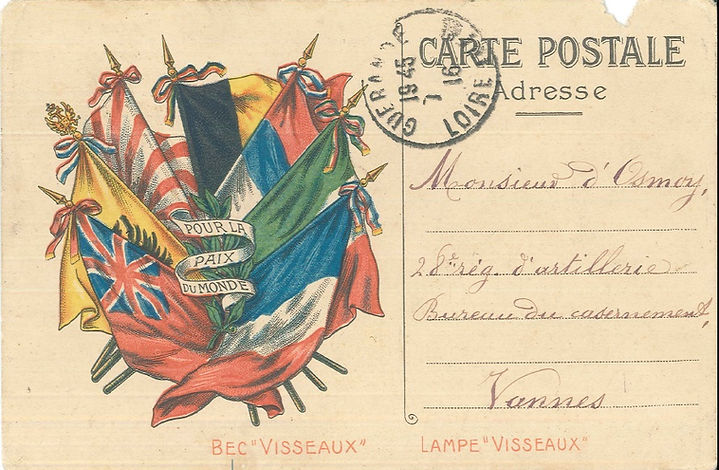 CARTE POSTALE
Adresse
GUERANDE
19 45
7
16
LOIRE
POUR LA
PAIX
DU MONDE
Monsieur d'Osmoy,
28e rég. d'artillerie
Bureau du casernement,
Vannes
BEC "VISSEAUX"
LAMPE "VISSEAUX"